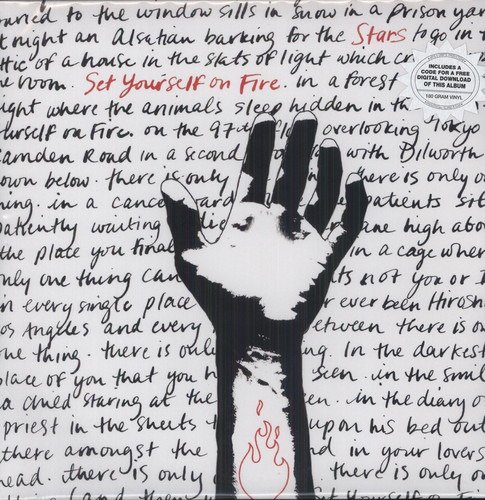 to the window sills in snow in a prison
t night an Alsatian barking for the Stars to go in
of a house in the slats of light which
room. Set Yourself on Fire. in a forest
ight where the animals sleep hidden in
urself on Fire. on the 97th overlooking Tokyo
amden Road in a second with Dilworth
own below. there is only there is only
ing. in a patients sit
patiently waiting high abov
the place you final in a cage wher
nly one thing can its not you or I
in every single place r ever been Hirosh
os Angeles and every etween there is
ne thing. there is only ng. In the darkest
place of you that you h seen. in the smil
a child staring at the en. in the diary o
priest in the sheets upon his bed out
there amongst the and in your lovers
head. there is only there is only
INCLUDES A
CODE FOR A FREE
DIGITAL DOWNLOAD
OF THIS ALBUM
180 GRAM VINYL